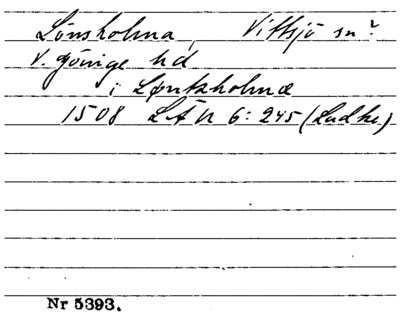 Lönsholma, Vittsjö sn?
V. Göinge hd
i Løntzholmæ
1508 LÅ N 6:245 (Ludhe)
Nr 5393.